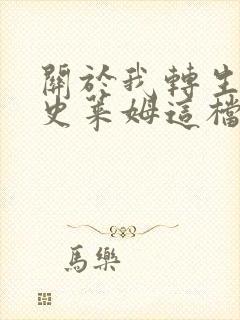 關於我轉生
史萊姆這檔
馬樂